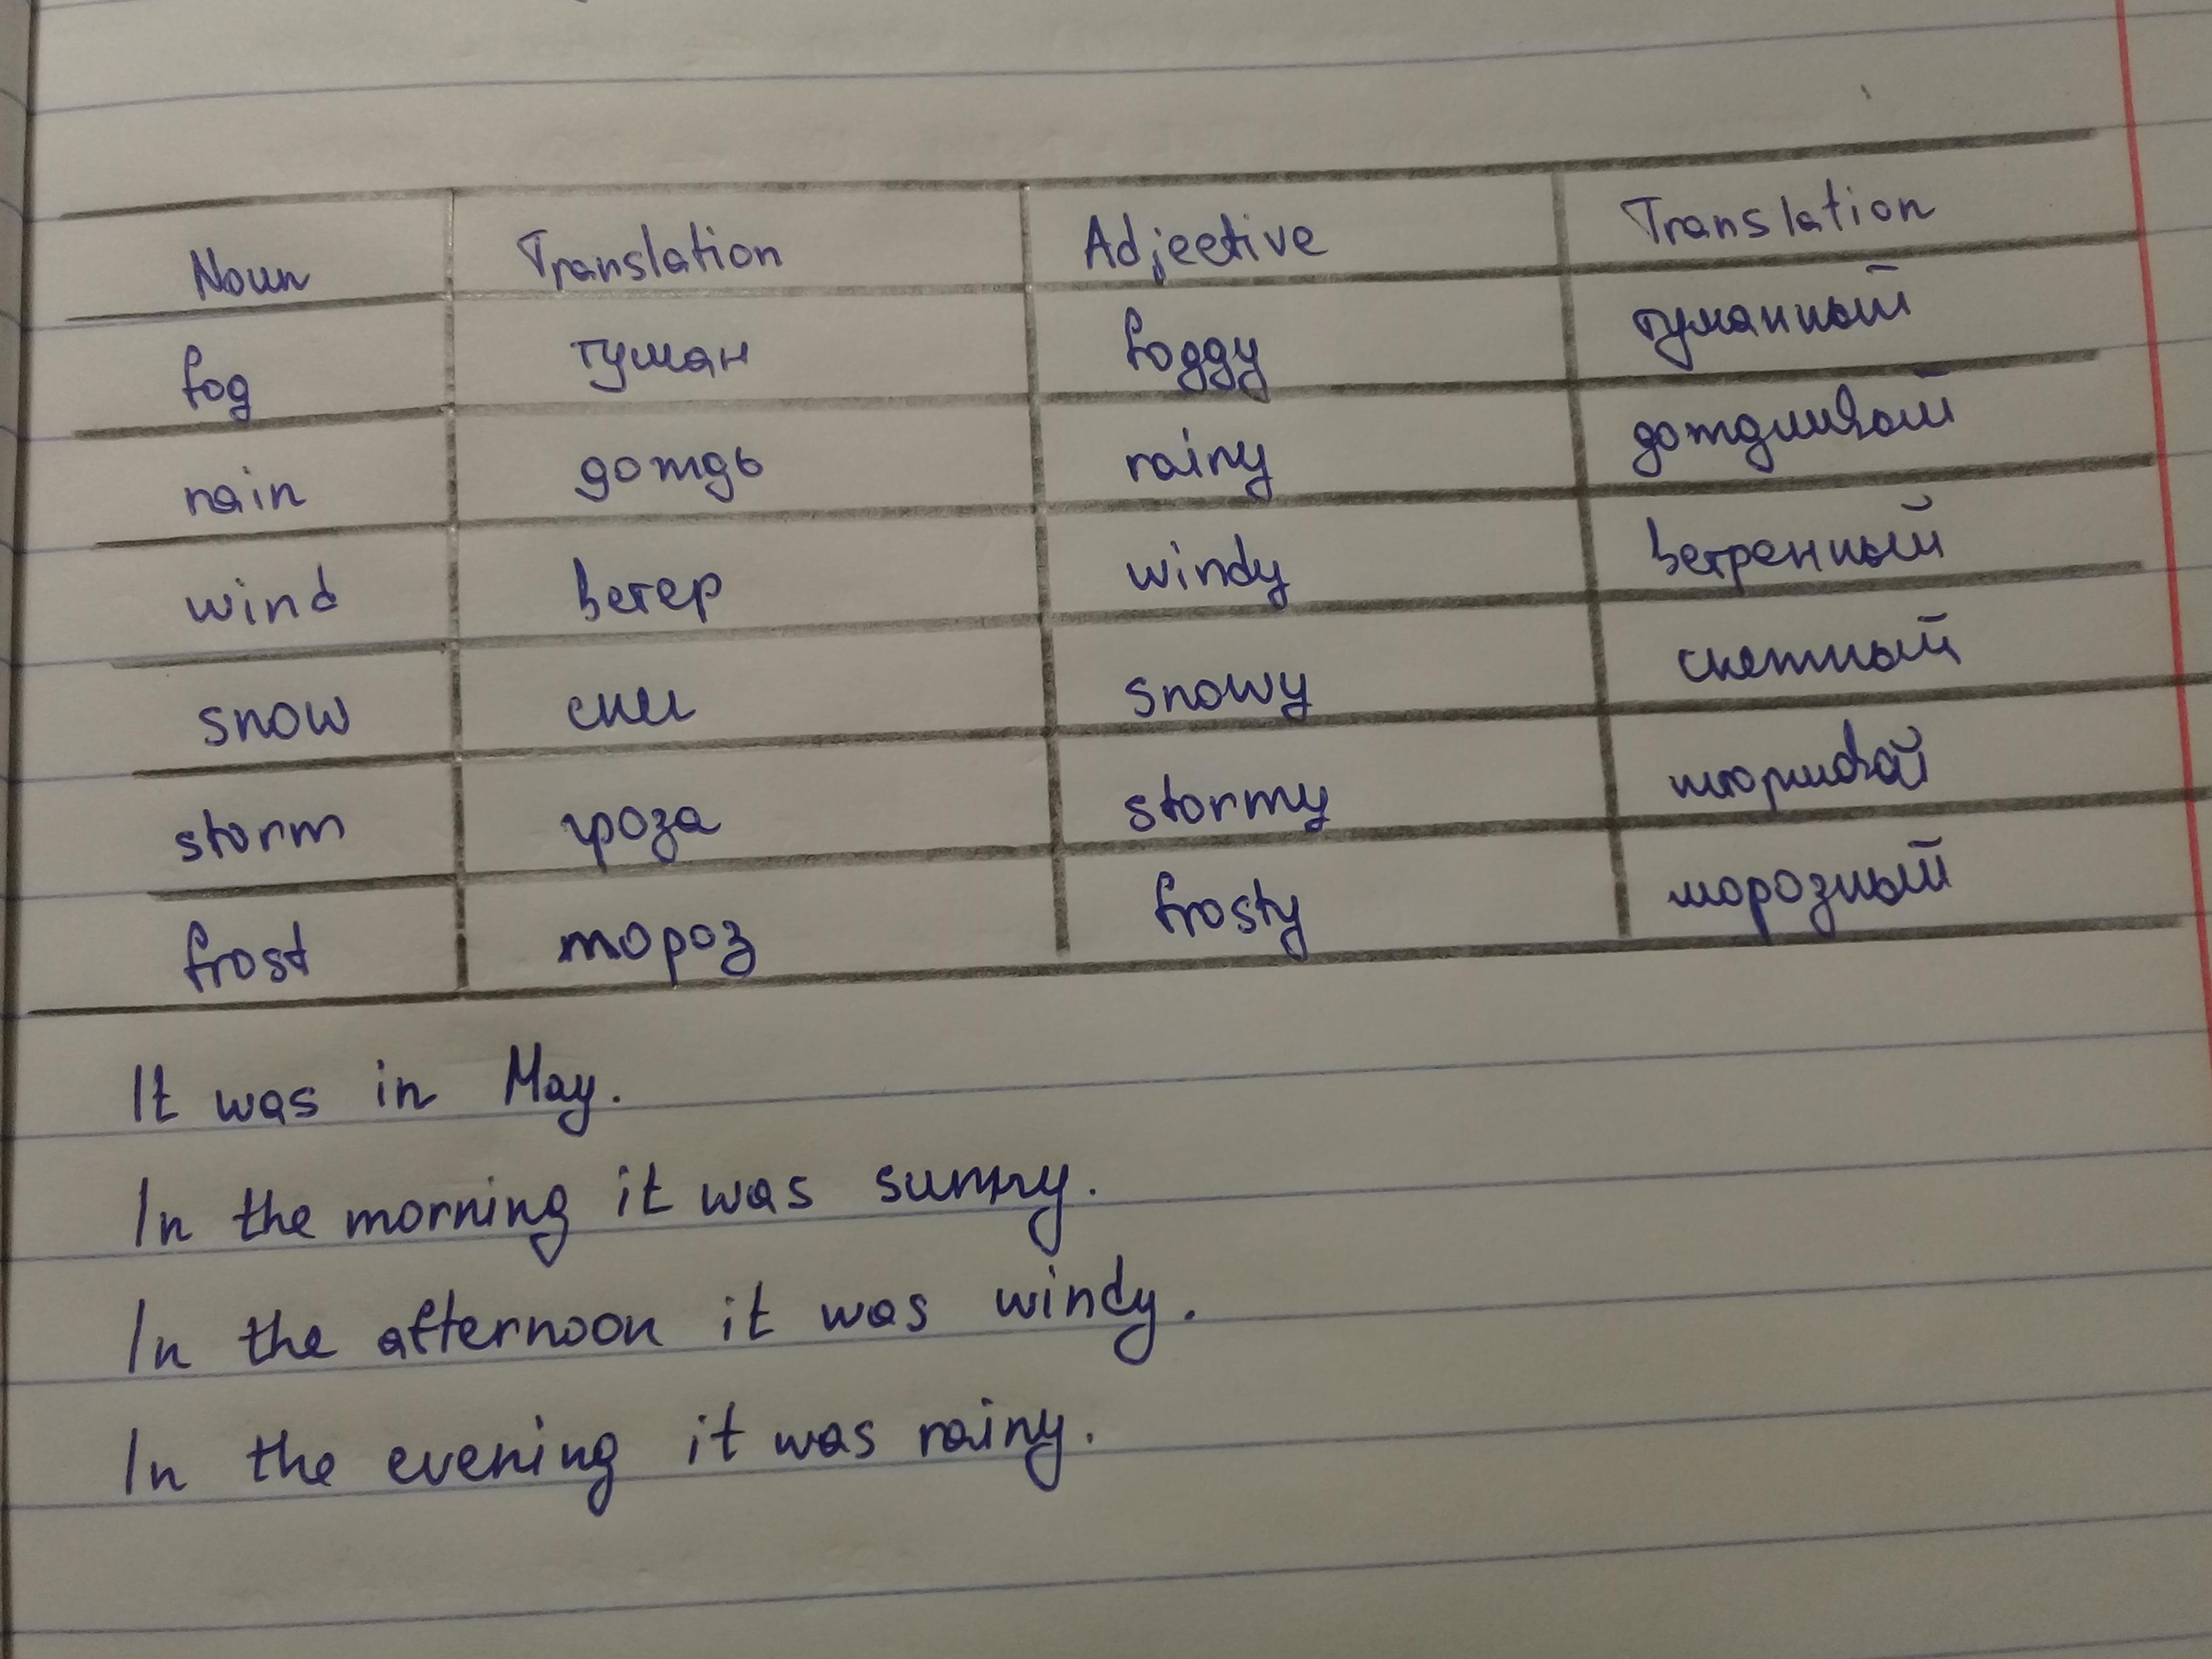 Noun Translation Adjective Translation
fog туман foggy туманный
rain дождь rainy дождливый
wind ветер windy ветренный
snow снег snowy снежный
storm гроза stormy штормовой
frost мороз frosty морозный
It was in May.
In the morning it was sunny.
In the afternoon it was windy.
In the evening it was rainy.